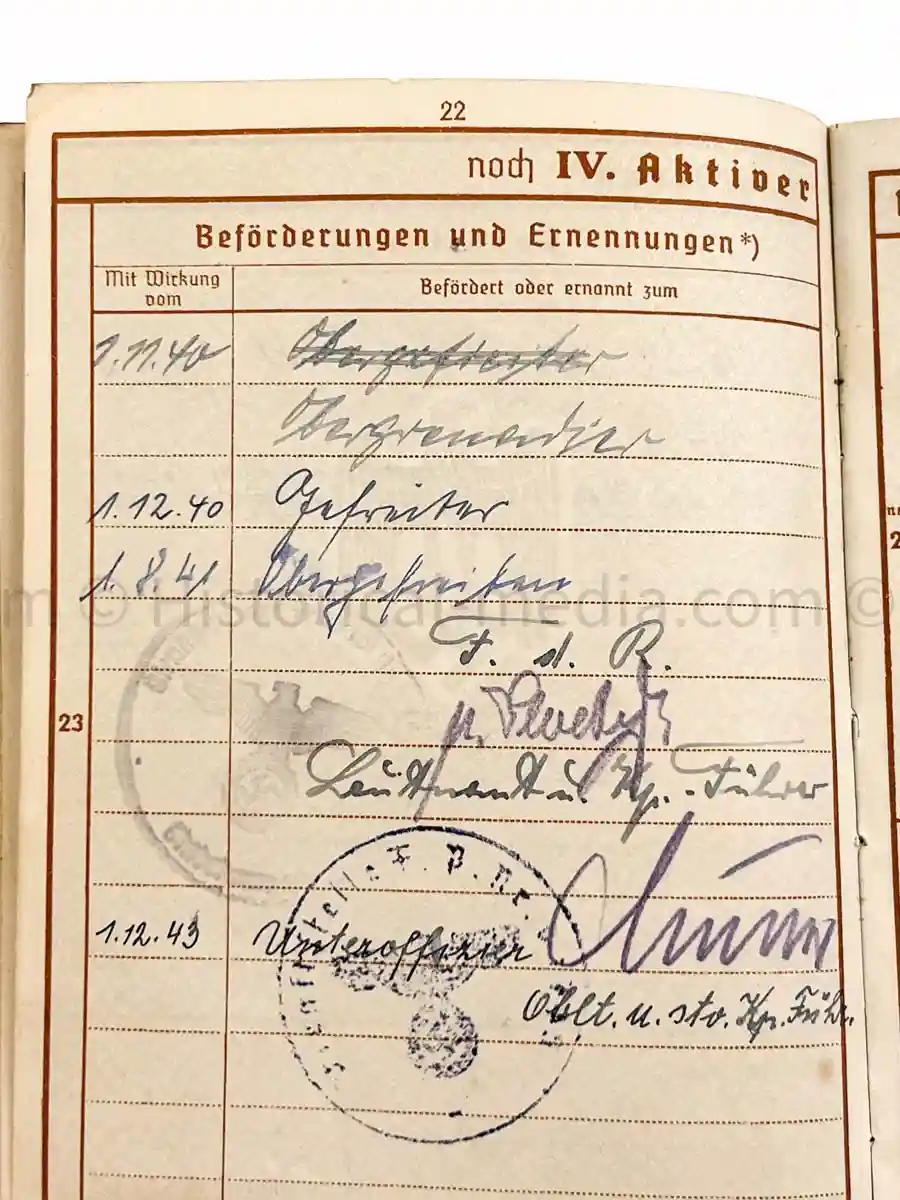 22
noch IV. Aktiver
Beförderungen und Ernennungen*)
Mit Wirkung vom
Befördert oder ernannt zum
1.11.40 Obergefreiter
Obergrenadier
1.12.40 Gefreiter
1.8.41 Obergefreiten
m © Historical-media.com ©
F. d. R.
23
Leutnant u. Kp.-Führer
Dienststelle F. P. Nr.
1.12.43 Unteroffizier
Oblt. u. stv. Kp. Führ.